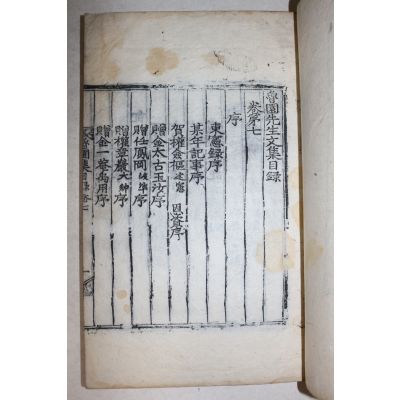 魯園先生文集目録
卷第七
序
東憲録序
某年記事序
賀權金樞 回甲序
贈金太古玉汝序
贈任鳳岡 序
贈權章巖大紳序
贈金一菴禹用序
魯園集目録 卷七